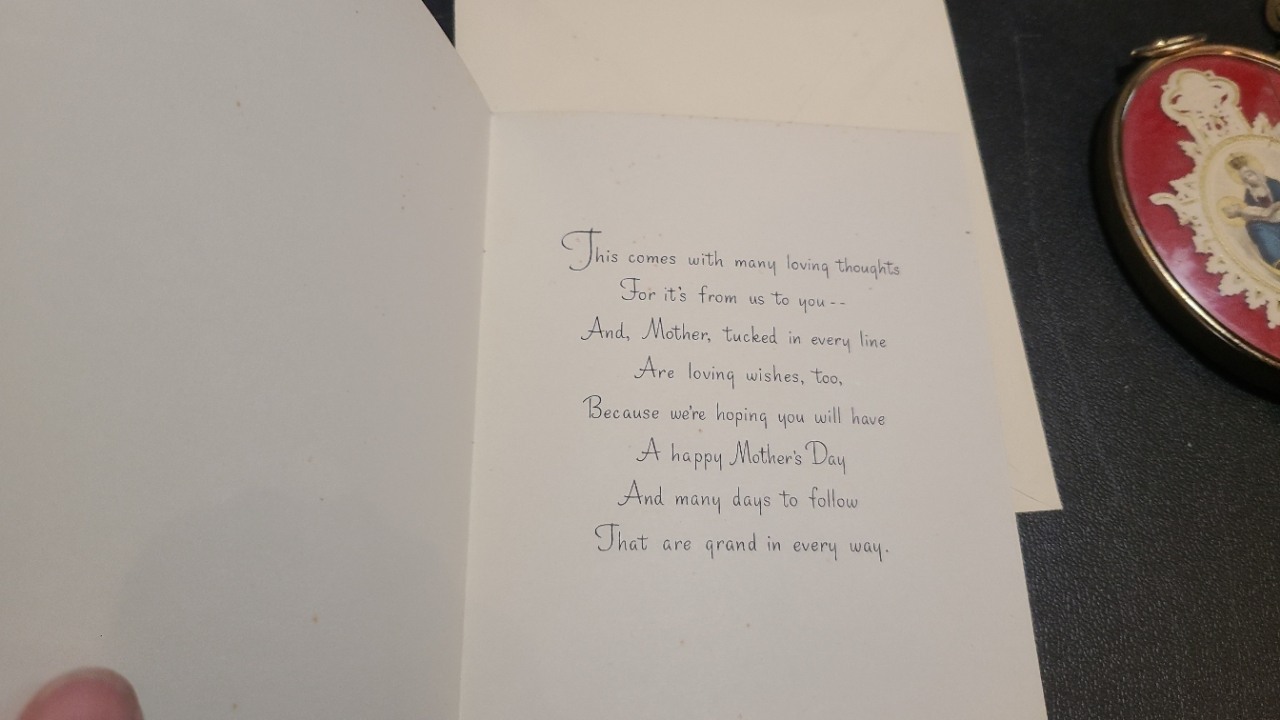 This comes with many loving thoughts
For it's from us to you--
And, Mother, tucked in every line
Are loving wishes, too,
Because we're hoping you will have
A happy Mother's Day
And many days to follow
That are grand in every way.